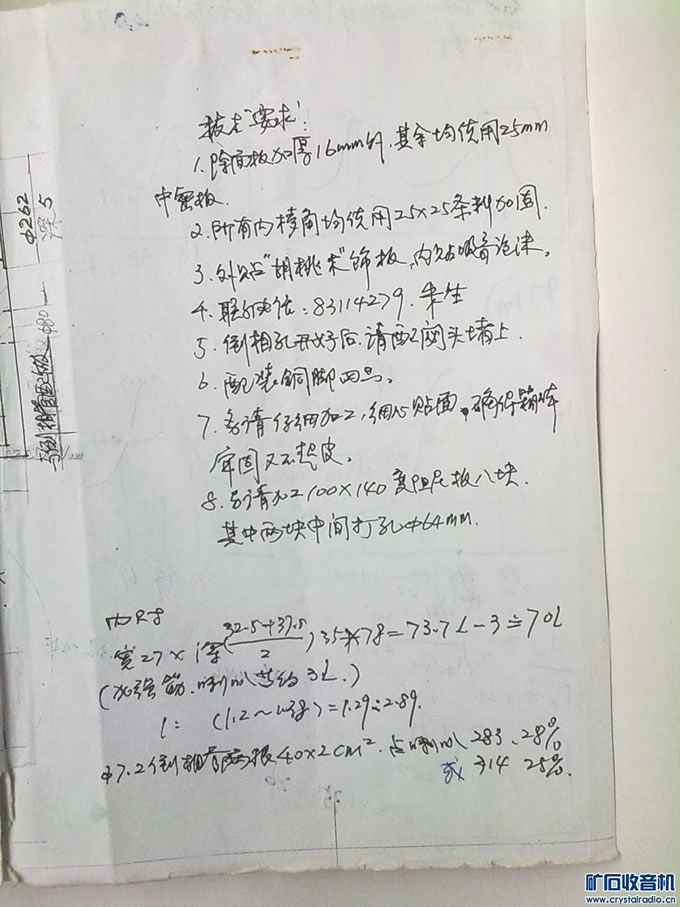 技术要求:
1. 除底板加厚16mm外.其余均使用25mm
中密板.
2. 所有内棱角均使用25×25条料加固.
3. 外贴"胡桃木"饰板,内贴吸音泡沫。
4. 联系电话:83114279. 朱生
5. 倒相孔开好后.请配网头堵上.
6. 配装铜脚四只。
7. 务请仔细加工,细心贴面,确保箱体
牢固又不起皮。
8. 另请加工100×140高阻尼板八块.
其中两块中间打孔Φ64mm.
内尺寸
宽27×深(32.5+37.5/2)35×78=73.7L-3≒70L
(加强筋.喇叭共约3L.)
1: (1.2~ )=1.29:2.89.
Φ7.2倒相管两根40×2cm². 占喇叭283、28%
或314 25%.
Φ262
深5
倒相管两根
680
矿石收音机
www.crystalradio.cn